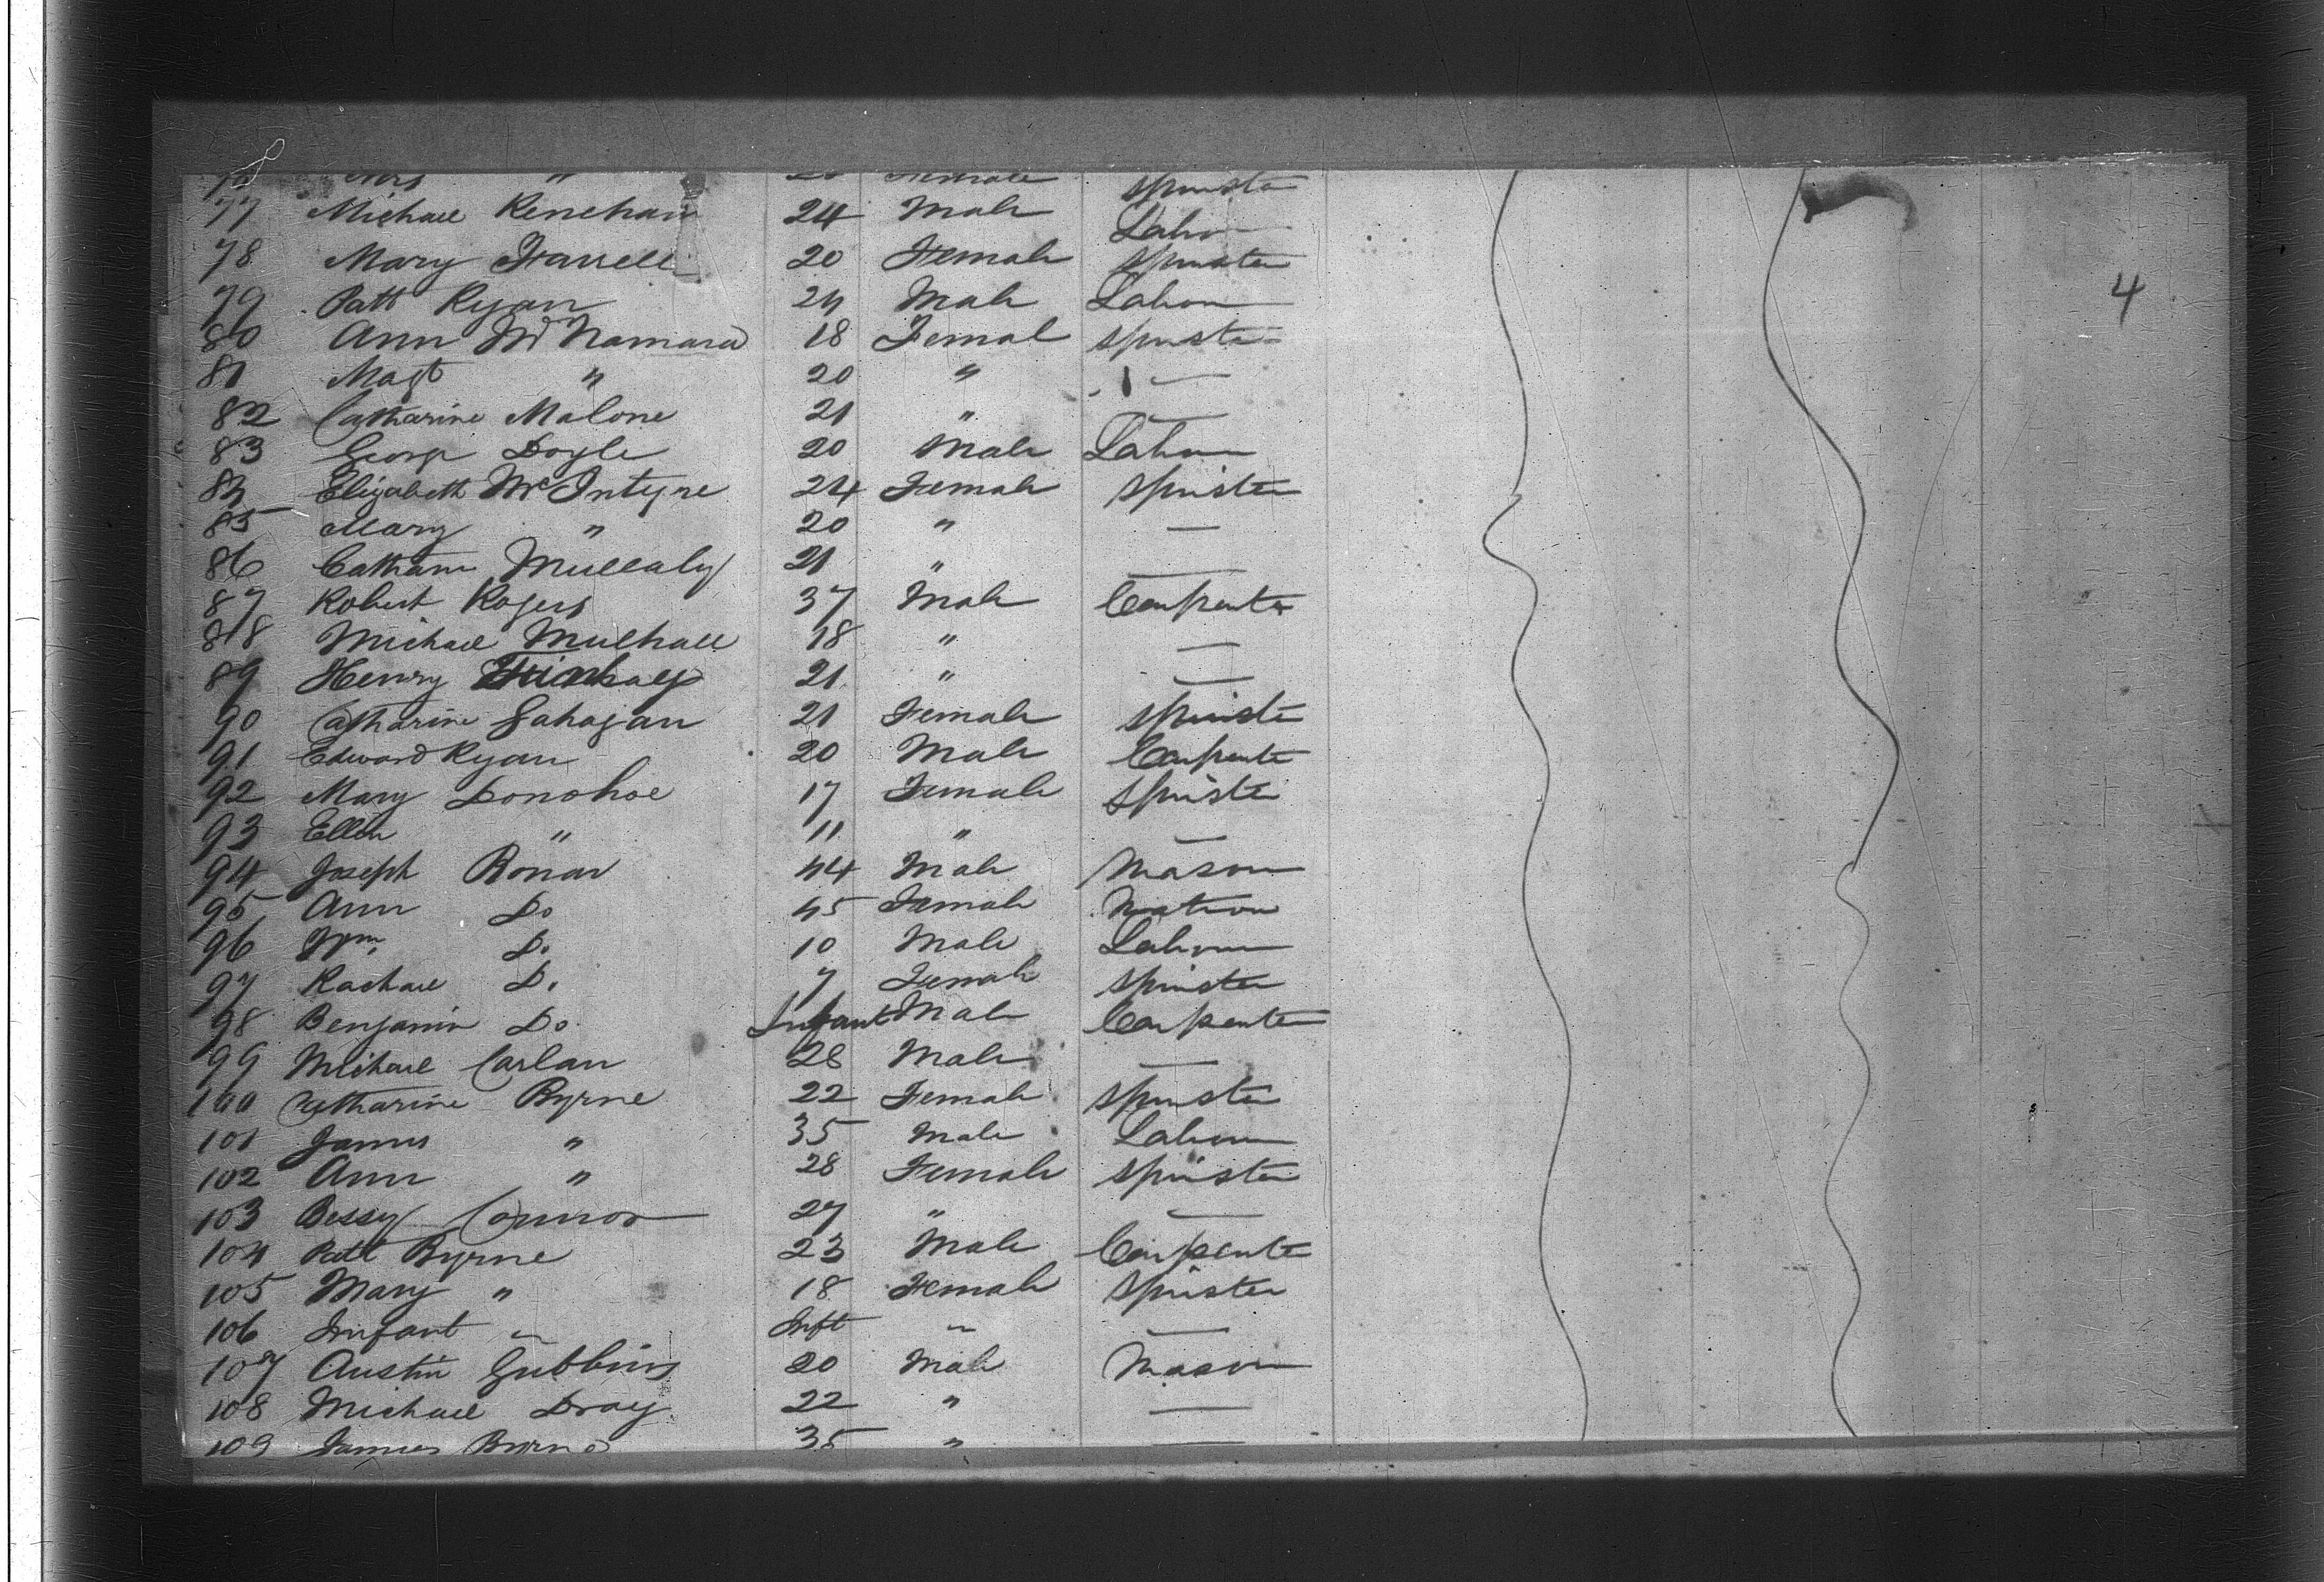 77 Michael Renehan 24 Male Labor
78 Mary Farrell 20 Female Spinster
4
79 Patt Ryan 24 Male Labour
80 Ann McNamara 18 Femal Spinster
81 Magt " 20 " —
82 Catharine Malone 21 " —
83 George Doyle 20 Male Labour
84 Elizabeth McIntyre 24 Female Spinster
85 Mary " 20 " —
86 Catharine Mullaly 21 " —
87 Robert Rogers 37 Male Carpenter
88 Michael Mulhall 18 " —
89 Henry 21 " —
90 Catharine Gahagan 21 Female Spinster
91 Edward Ryan 20 Male Carpenter
92 Mary Donohoe 17 Female Spinster
93 Ellen " 11 " —
94 Joseph Ronan 44 Male Mason
95 Ann Do 45 Female Matron
96 Wm. Do 10 Male Labour
97 Rachael Do 7 Female Spinster
98 Benjamin Do Infant Male Carpenter
99 Michael Carlan 28 Male —
100 Catharine Byrne 22 Female Spinster
101 James " 35 Male Labour
102 Ann " 28 Female Spinster
103 Bessy Connor 27 " —
104 Patt Byrne 23 Male Carpenter
105 Mary " 18 Female Spinster
106 Infant " Inft " —
107 Austin Gubbins 20 Male Mason
108 Michael Dray 22 " —
109 James Byrne 35 " —